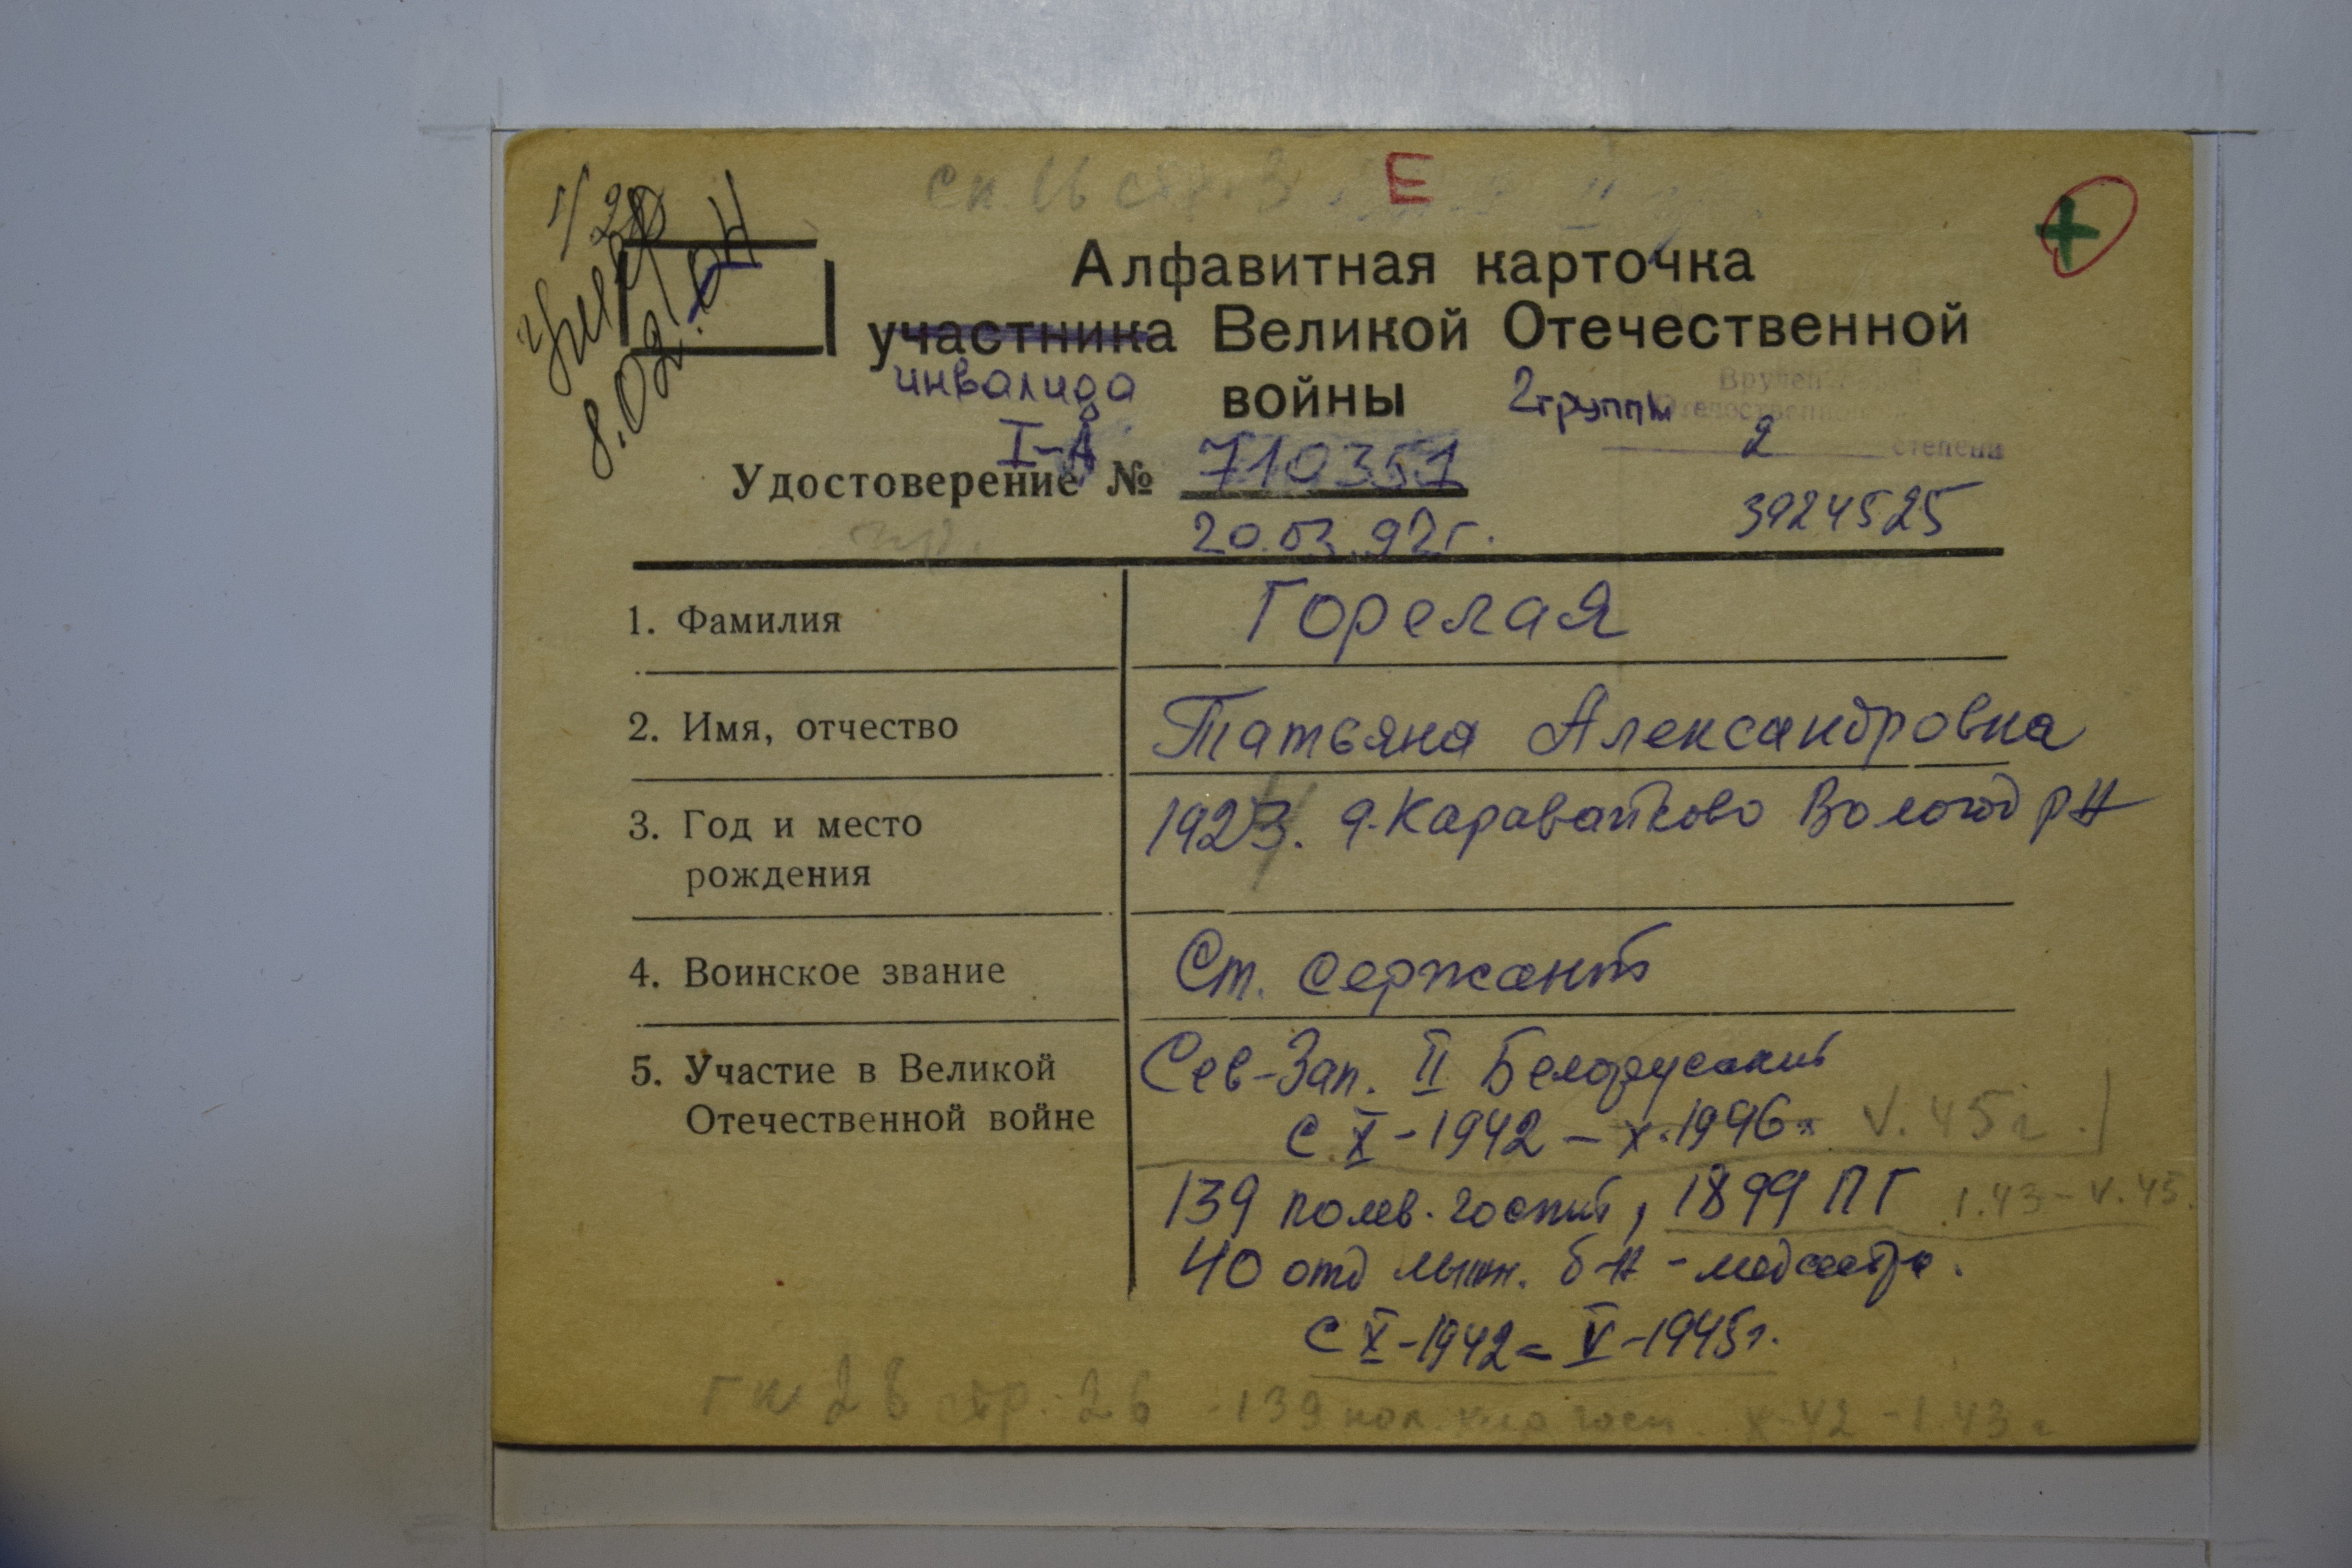 Сп. 16 стр. 3
Е
+
Алфавитная карточка
участника Великой Отечественной
инвалида
войны
2 группы
Вручен
Отечественной
2 степени
I-Д
Удостоверение № 710351
20.03.92г.
3924525
8.02.
1. Фамилия
Горелая
2. Имя, отчество
Татьяна Александровна
3. Год и место
рождения
1923. д. Каравайково Вологод р-н
4. Воинское звание
Ст. сержант
5. Участие в Великой
Отечественной войне
Сев-Зап. II Белорусский
с X-1942 – X.1946 V.45г.
139 полев. госпит, 1899 ПГ I.43 – V.45.
40 отд б-н - медсестра.
с X-1942 = V-1945г.
стр. 26 139 пол. госп. X-42 – I.43г